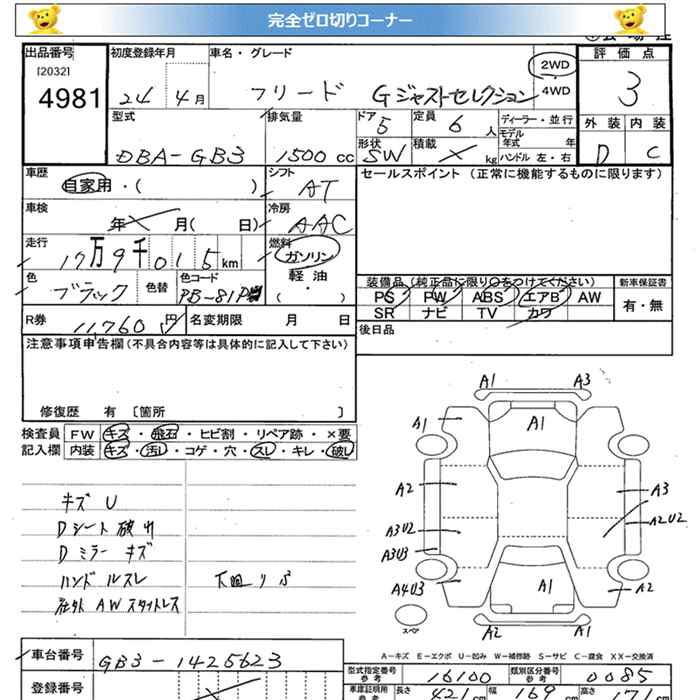 完全ゼロ切りコーナー
出品番号 初度登録年月 車名・グレード 評価点
[2032]
4981 24 4月 フリード Gジャストセレクション 2WD 4WD 3
型式 排気量 ドア 5 定員 6 人 ディーラー・並行 外装 内装
モデル年式 年
DBA-GB3 1500 cc 形状 SW 積載 kg ハンドル 左・右 D C
車歴 シフト セールスポイント(正常に機能するものに限ります)
自家用・( ) AT
車検 冷房
年 月( 日) AAC
走行 燃料
17万9千015km ガソリン
色 色替 色コード 軽油
ブラック PB-81P ( )
装備品(純正品に限り○をつけてください) 新車保証書
PS PW ABS エアB AW 有・無
SR ナビ TV カワ
R券 11760円 名変期限 月 日 後日品
注意事項申告欄(不具合内容等は具体的に記入して下さい)
修復歴 有 〔箇所 〕
検査員 FW キズ・飛石・ヒビ割・リペア跡・×要
記入欄 内装 キズ・汚レ・コゲ・穴・スレ・キレ・破レ
キズ U
Dシート破れ
Dミラーキズ
ハンドルスレ 下回りS
社外 AW スタットレス
A1 A3
A1 A1
A2 A3
A3U2 A2U2
A3U3
A4U3 A1 A2
スペア A2 A1
A-キズ E-エクボ U-凹み W-補修跡 S-サビ C-腐食 XX-交換済
車台番号 GB3-1425623
型式指定番号 参考 16100 類別区分番号 参考 0085
登録番号
車庫証明用 参考 長さ 421 cm 幅 169 cm 高さ 171